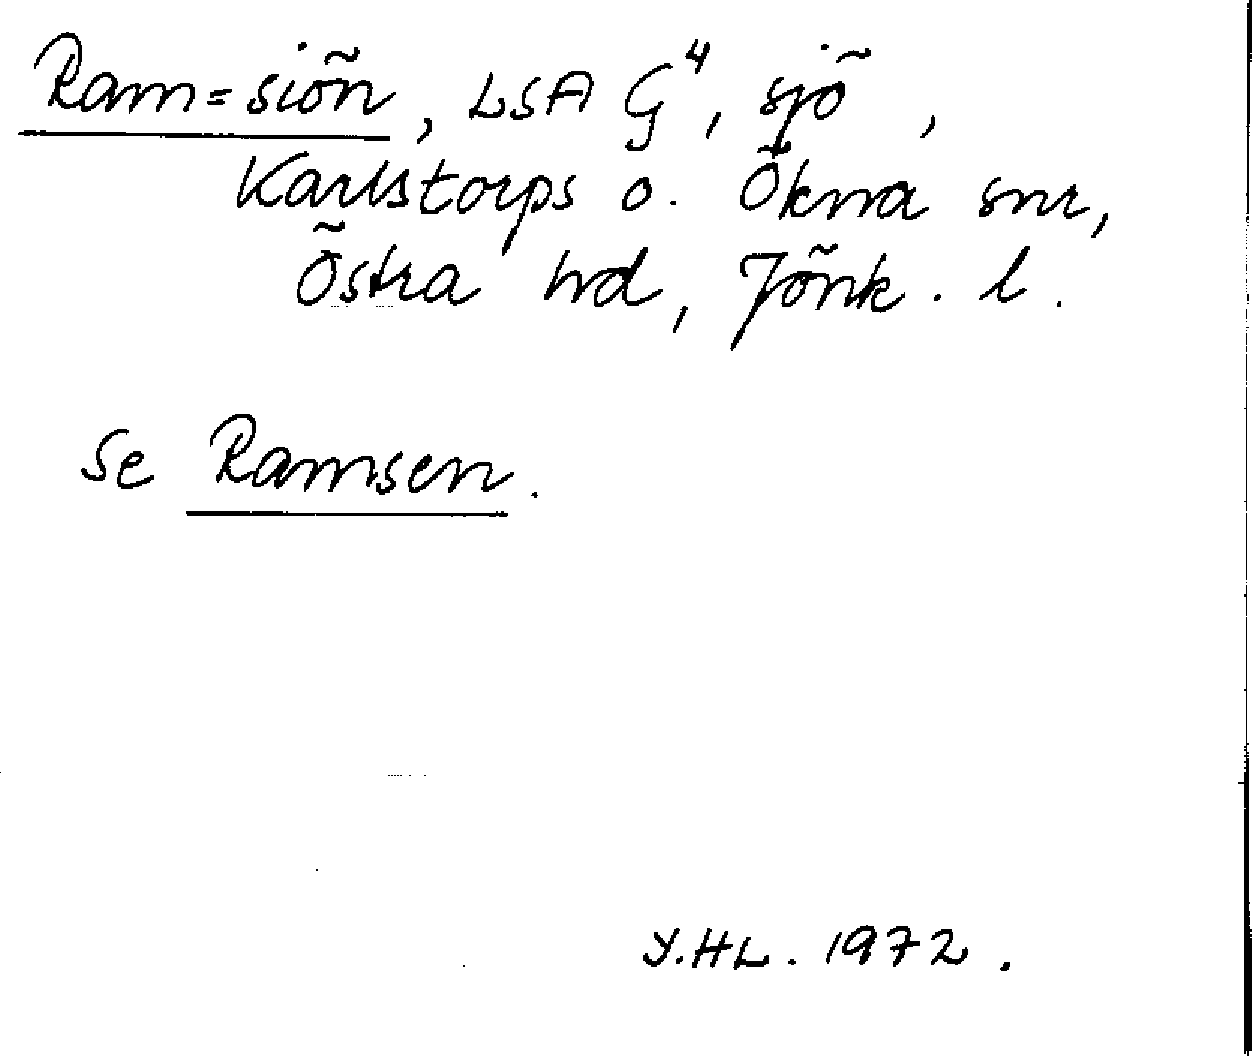 Ram=siön, LSA G⁴, sjö,
Karlstorps o. Ökna snr,
Östra hd, Jönk. l.
Se Ramsen.
Y.HL. 1972.